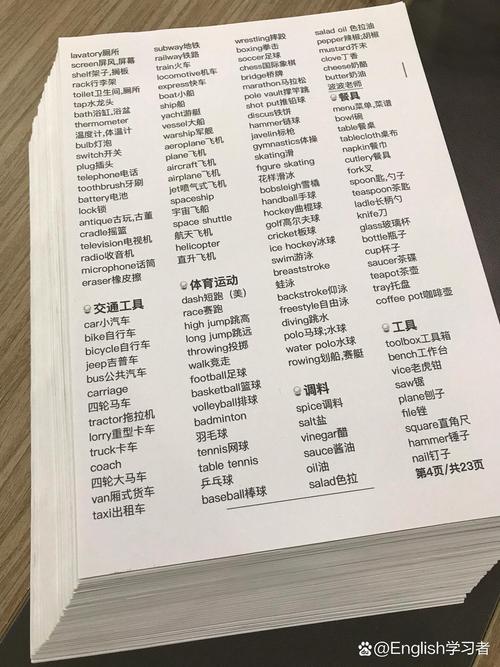 lavatory厕所
screen屏风,屏幕
shelf架子,搁板
rack行李架
toilet卫生间,厕所
tap水龙头
bath浴缸,浴盆
thermometer
温度计,体温计
bulb灯泡
switch开关
plug插头
telephone电话
toothbrush牙刷
battery电池
lock锁
antique古玩,古董
cradle摇篮
television电视机
radio收音机
microphone话筒
eraser橡皮擦
交通工具
car小汽车
bike自行车
bicycle自行车
jeep吉普车
bus公共汽车
carriage
四轮马车
tractor拖拉机
lorry重型卡车
truck卡车
coach
四轮大马车
van厢式货车
taxi出租车
subway地铁
railway铁路
train火车
locomotive机车
express快车
boat小船
ship船
yacht游艇
vessel大船
warship军舰
aeroplane飞机
plane飞机
aircraft飞机
airplane飞机
jet喷气式飞机
spaceship
宇宙飞船
space shuttle
航天飞机
helicopter
直升飞机
体育运动
dash短跑（美）
race赛跑
high jump跳高
long jump跳远
throwing投掷
walk竞走
football足球
basketball篮球
volleyball排球
badminton
羽毛球
tennis网球
table tennis
乒乓球
baseball棒球
wrestling摔跤
boxing拳击
soccer足球
chess国际象棋
bridge桥牌
marathon马拉松
pole vault撑竿跳
shot put推铅球
discus铁饼
hammer链球
javelin标枪
gymnastics体操
skating滑
figure skating
花样滑冰
bobsleigh雪橇
handball手球
hockey曲棍球
golf高尔夫球
cricket板球
ice hockey冰球
swim游泳
breaststroke
蛙泳
backstroke仰泳
freestyle自由泳
diving跳水
polo马球;水球
water polo水球
rowing划船,赛艇
调料
spice调料
salt盐
vinegar醋
sauce酱油
oil油
salad色拉
salad oil 色拉油
pepper辣椒;胡椒
mustard芥末
clove丁香
cheese奶酪
butter奶油
波波老师
餐具
menu菜单,菜谱
bowl碗
table餐桌
tablecloth桌布
napkin餐巾
cutlery餐具
fork叉
spoon匙,勺子
teaspoon茶匙
ladle长柄勺
knife刀
glass玻璃杯
bottle瓶子
cup杯子
saucer茶碟
teapot茶壶
tray托盘
coffee pot咖啡壶
工具
toolbox工具箱
bench工作台
vice老虎钳
saw锯
plane刨子
file锉
square直角尺
hammer锤子
nail钉子
第4页/共23页
@English学习者